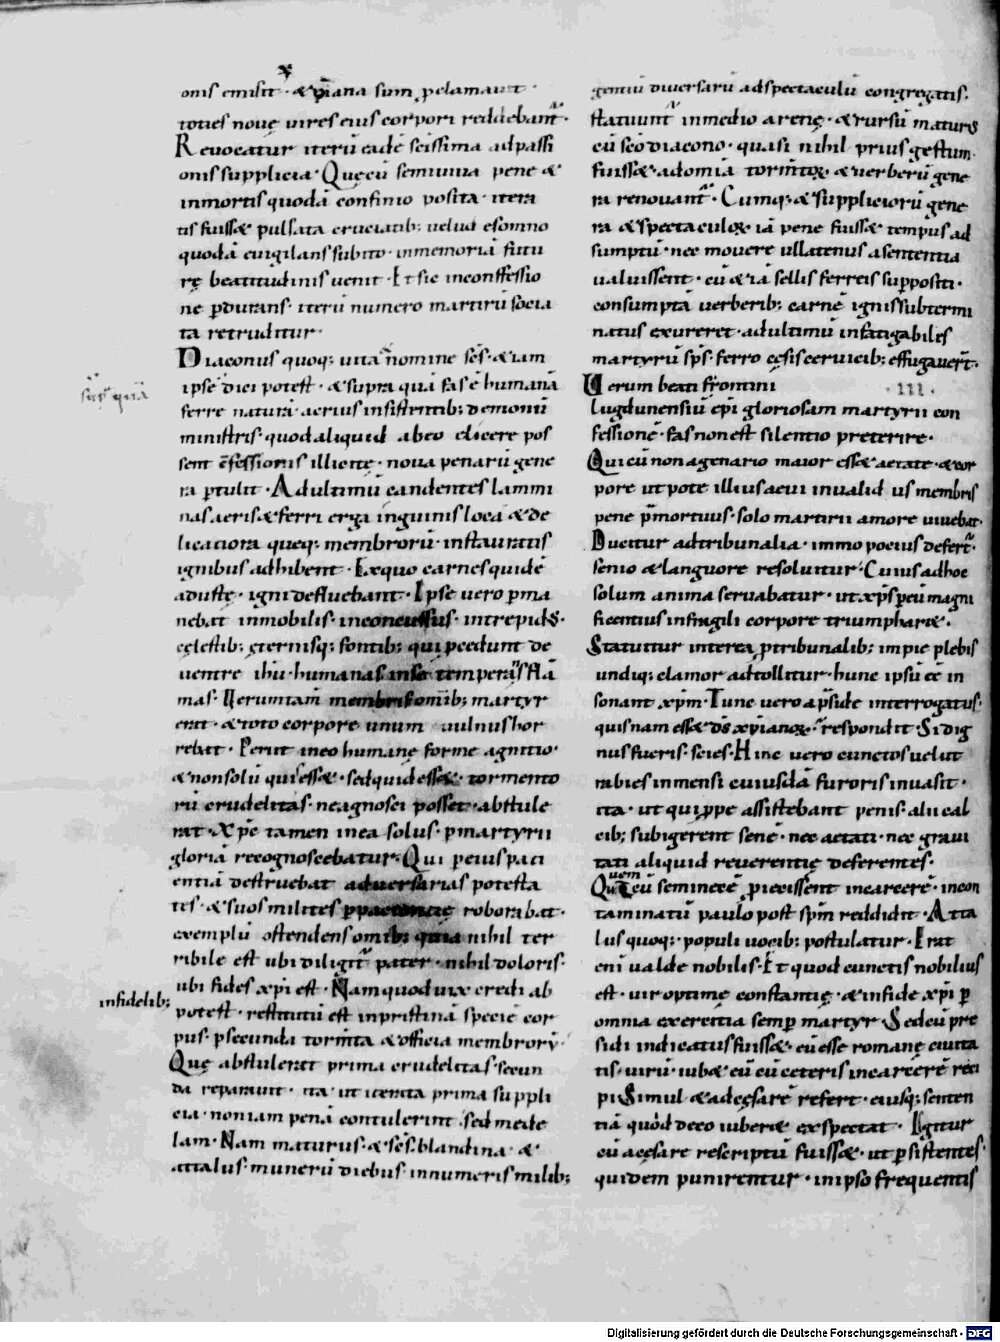 onis emisit · & xp̄iana sum p̱clamauit ·
toties nouę uires eius corpori reddebant᷑ ·
Reuocatur iterū eadē scissima ad passi
onis supplicia · Quę cū semiuiua pene &
in mortis quodā confinio posita · itera
tis fuiss& pulsata cruciatib; uelud e somno
quodā euigilans subito · in memoriā futu
rę beatitudinis uenit · Et sic in confessio
ne p̱durans · iterū numero martirū socia
ta retruditur ·
Diaconus quoq; uita nomine sc̄s · & iam
ipse dici potest · & supra quā fas ē humanā
ferre naturā · aerius insistentib; demonū
ministris · quod aliquid ab eo elicere pos
sent c̄fessionis illicitę · noua penarū gene
ra p̱tulit · Ad ultimū candentes lammi
nas aeris & ferri erga inguinis loca & de
licatiora queq; membrorū · instauratis
ignibus adhibent · Ex quo carnes quidē
adustę · igni defluebant · Ipse uero p̱ma
nebat inmobilis · inconcussus · intrepidus ·
cęlestib; ęternisq; fontib; qui p̱cedunt de
uentre ihū · humanas in se temperans flā
mas · Uerumtam̄ membris om̄ib; martyr
erat · & toto corpore unum uulnus hor
rebat · Periit in eo humanę formę agnitio ·
& non solū quis ess& · sed quid ess& · tormento
rū crudelitas · ne agnosci posset · abstule
rat · Xp̄c tamen in ea solus · p̱ martyrii
gloriā recognoscebatur · Qui p̱ eius paci
entiā destruebat aduersarias potesta
tes · & suos milites p̱ patientię roborabat ·
exemplū ostendens omib; quia nihil ter
ribile est ubi diligit᷑ pater · nihil doloris ·
ubi fides xp̄i est · Nam quod uix credi ab
infidelib;
potest · restitutū est in pristinā specie cor
pus · p̱ secunda torm̄ta & officia membrorū ·
Quę abstulerat prima crudelitas · secun
da reparauit · ita ut iterata prima suppli
cia · non iam penā contulerint · sed mede
lam · Nam maturus · & sc̄s · blandina · &
attalus · munerū diebus innumeris milib;
gentiū diuersarū ad spectaculū congregatis ·
statuunt᷑ in medio arenę · & rursū maturus
cū sc̄o diacono · quasi nihil prius gestum
fuiss& · ad omia torm̄tox & uerberū gene
ra renouant᷑ · Cumq; & suppliciorū gene
ra & spectaculox iā pene fuiss& tempus ad
sumptū · nec mouere ullatenus a sententia
ualuissent · cū & iā sellis ferreis suppositi ·
consumptā uerberib; carnē ignis subtermi
natus exureret · ad ultimū infatigabiles
martyrū sp̄s · ferro cęsis ceruicib; effugauert̄ ·
Uerum beati frontini · III ·
lugdunensiū ep̄i gloriosam martyrii con
fessionē · fas non est silentio preterire ·
Qui cū nonagenario maior ess& aetate · & cor
pore ut pote illius aeui inualidus membris
pene p̄mortuus · solo martirii amore uiuebat ·
Ducitur ad tribunalia · immo pocius defert᷑ ·
senio & languore resoluitur · Cuius ad hoc
solum anima seruabatur · ut xp̄s p̱ eū magni
ficentius in fragili corpore triumphar& ·
Statuitur interea p̱ tribunalib; impie plebis
undiq; clamor adtollitur · hunc ipsū eē in
sonant xp̄m · Tunc uero a p̄side interrogatus ·
quisnam ess& d̄s xp̄ianox · respondit · Si dig
nus fueris · scies · Hinc uero cunctos uelut
rabies inmensi cuiusdā furoris inuasit ·
ita · ut qui p̱pe assistebant penis · alii cal
cib; subigerent senē · nec aetati · nec graui
tati aliquid reuerentię deferentes ·
Quem cū seminecē p̱iecissent in carcerē · incon
taminatū paulo post sp̄m reddidit · Atta
lus quoq; · populi uocib; postulatur · Erat
eni ualde nobilis · Et quod cunctis nobilius
est · uir optimę constantię · & in fide xp̄i p̱
omnia exercitia semp̱ martyr · Sed cū pre
sidi indicatus fuiss& · cū esse romanę ciuita
tis · uirū · iub& eū cū ceteris in carcerē reci
pi · Simul & ad cęsarē refert · eiusq; senten
tiā quōd de eo iuber& exspectat · Igitur
cū a cęsare rescriptū fuiss& · ut p̱sistentes ·
quidem punirentur · in ipso frequentis